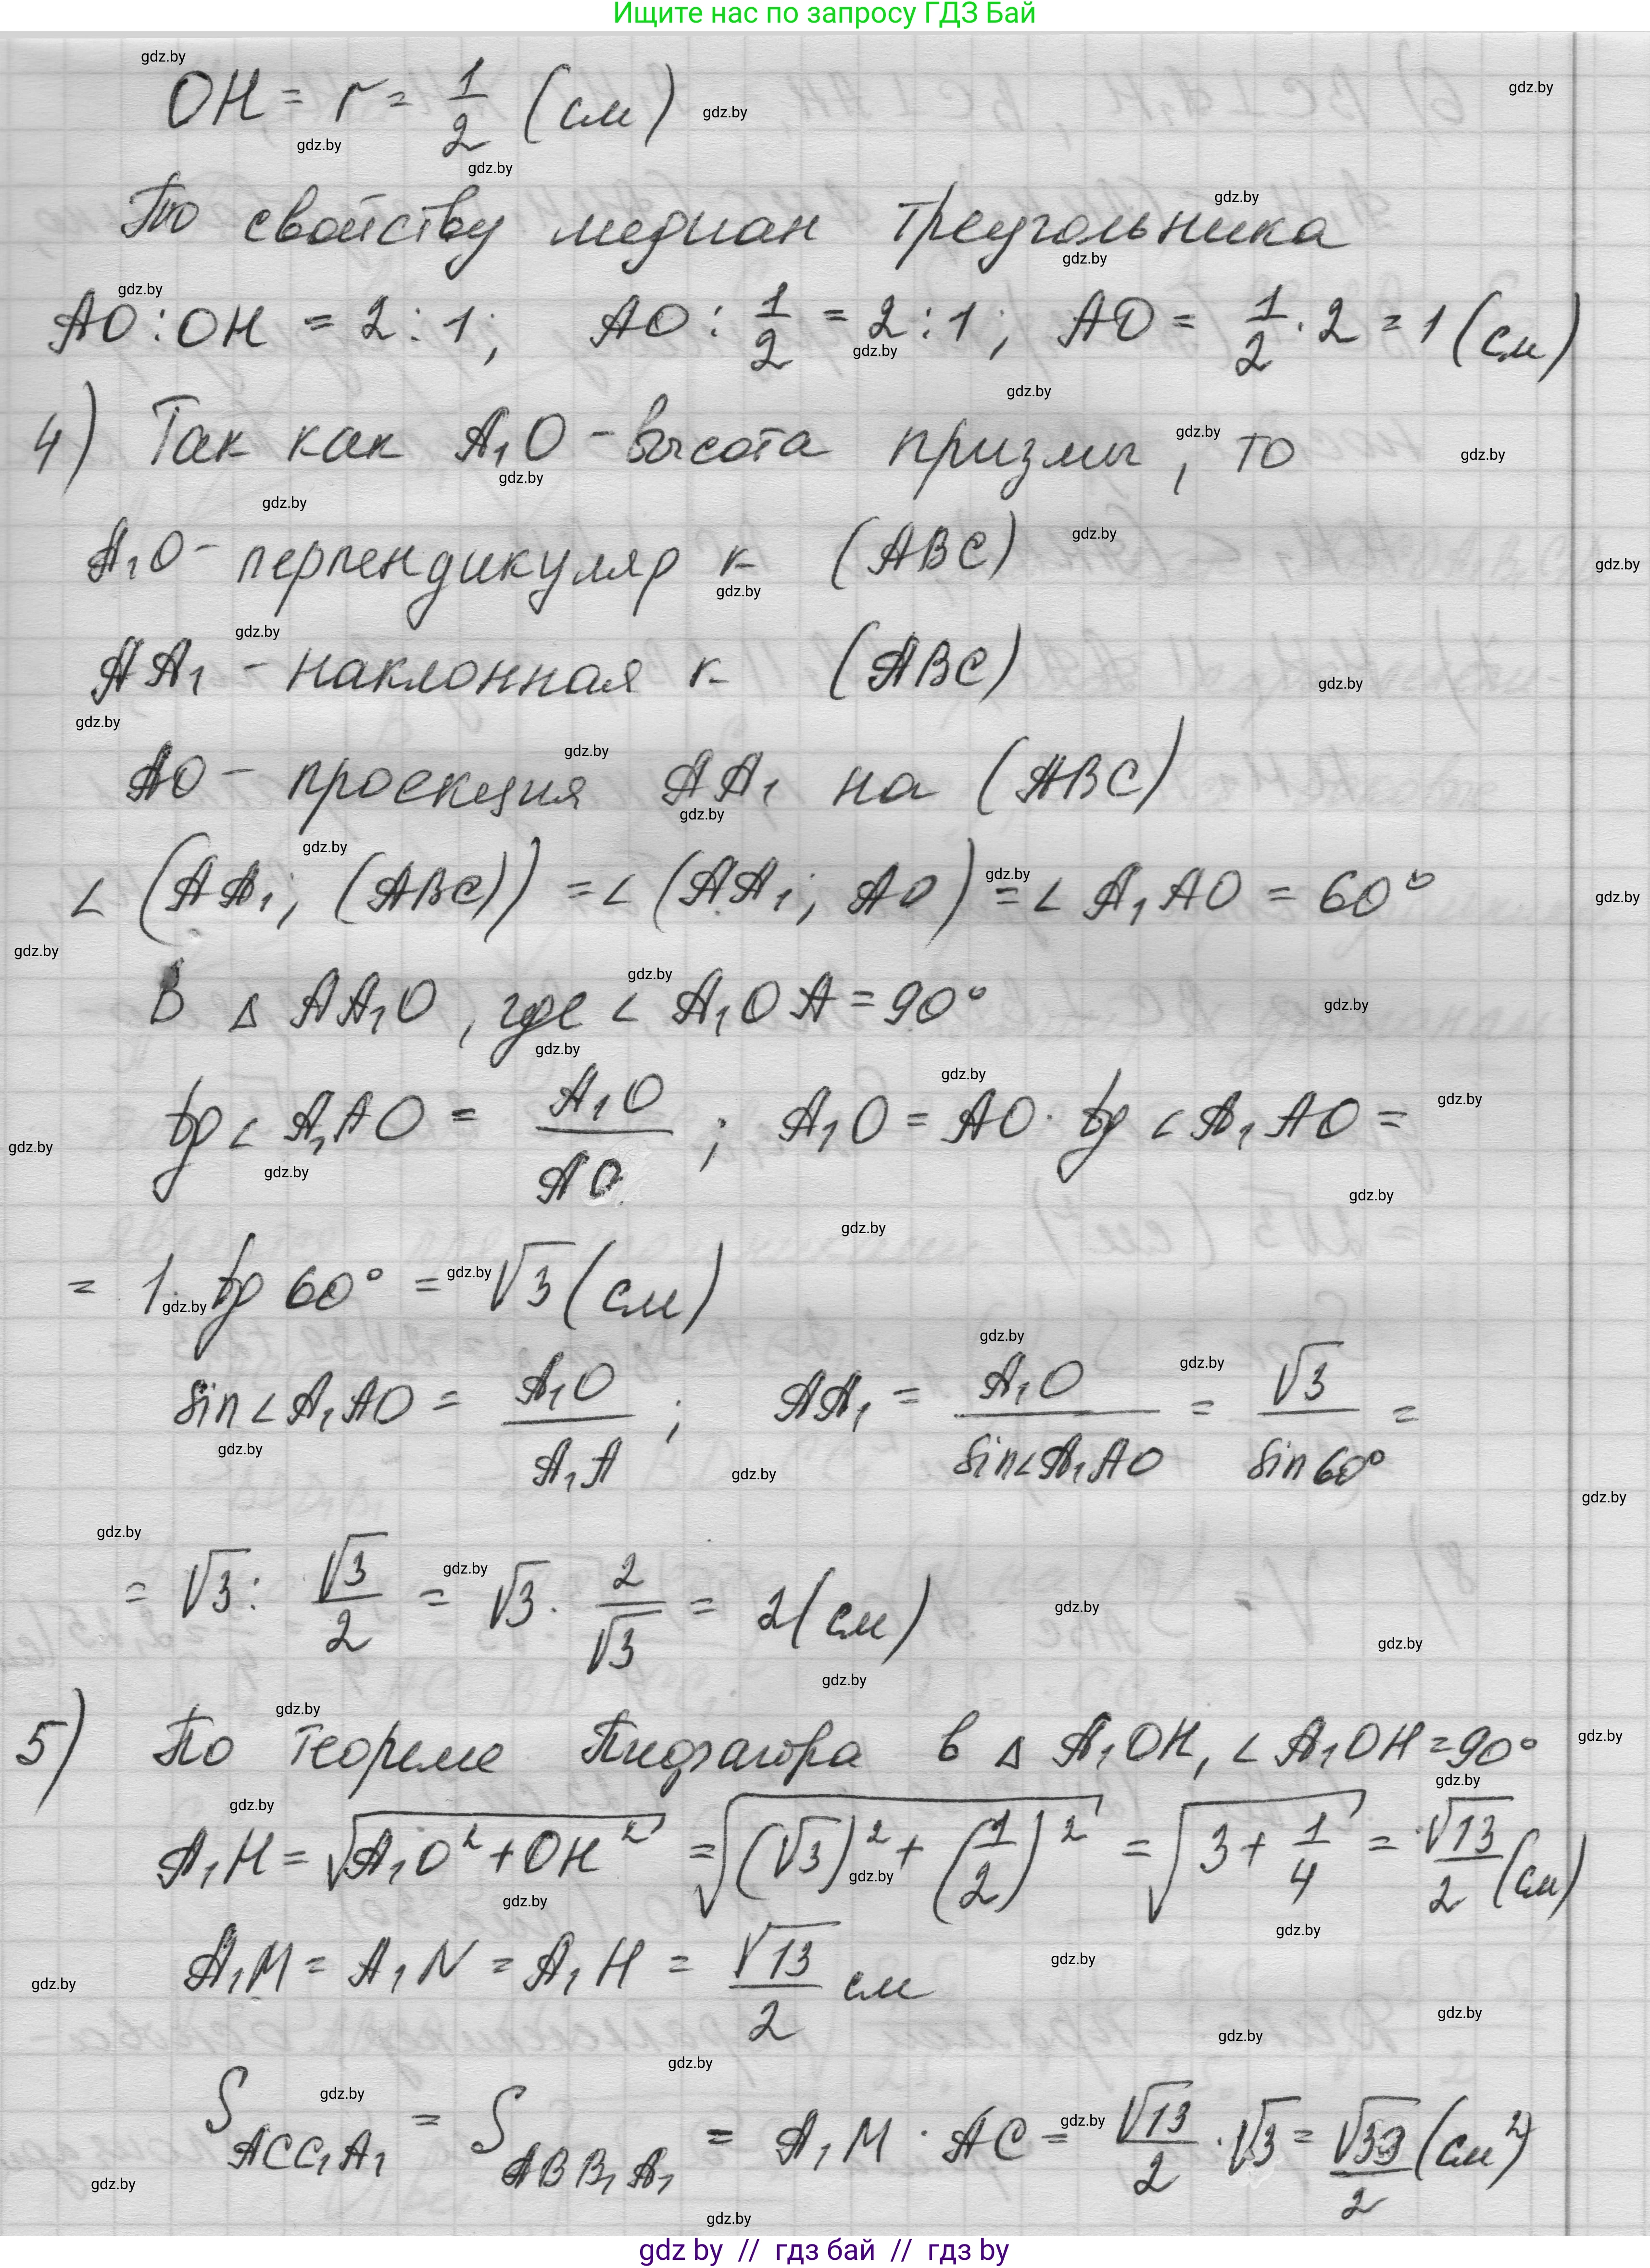 Ищите нас по запросу ГДЗ Бай
OH = r = 1/2 (см)
По свойству медиан треугольника
AO : OH = 2 : 1; AO : 1/2 = 2 : 1; AO = 1/2 · 2 = 1 (см)
4) Так как A₁O - высота призмы, то
A₁O - перпендикуляр к (ABC)
AA₁ - наклонная к (ABC)
AO - проекция AA₁ на (ABC)
∠ (AA₁; (ABC)) = ∠ (AA₁; AO) = ∠ A₁AO = 60°
В △ AA₁O, где ∠ A₁OA = 90°
tg ∠ A₁AO = A₁O/AO; A₁O = AO · tg ∠ A₁AO =
= 1 · tg 60° = √3 (см)
sin ∠ A₁AO = A₁O/A₁A; AA₁ = A₁O/sin∠A₁AO = √3/sin 60° =
= √3 : √3/2 = √3 · 2/√3 = 2 (см)
5) По теореме Пифагора в △ A₁OH, ∠ A₁OH = 90°
A₁H = √(A₁O² + OH²) = √((√3)² + (1/2)²) = √(3 + 1/4) = √13/2 (см)
A₁M = A₁N = A₁H = √13/2 см
S ACC₁A₁ = S ABB₁A₁ = A₁M · AC = √13/2 · √3 = √39/2 (см²)
gdz by // гдз бай // гдз by